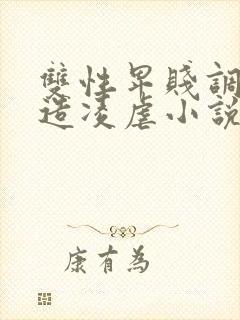 雙性卑賤調
造凌虐小說
康有為